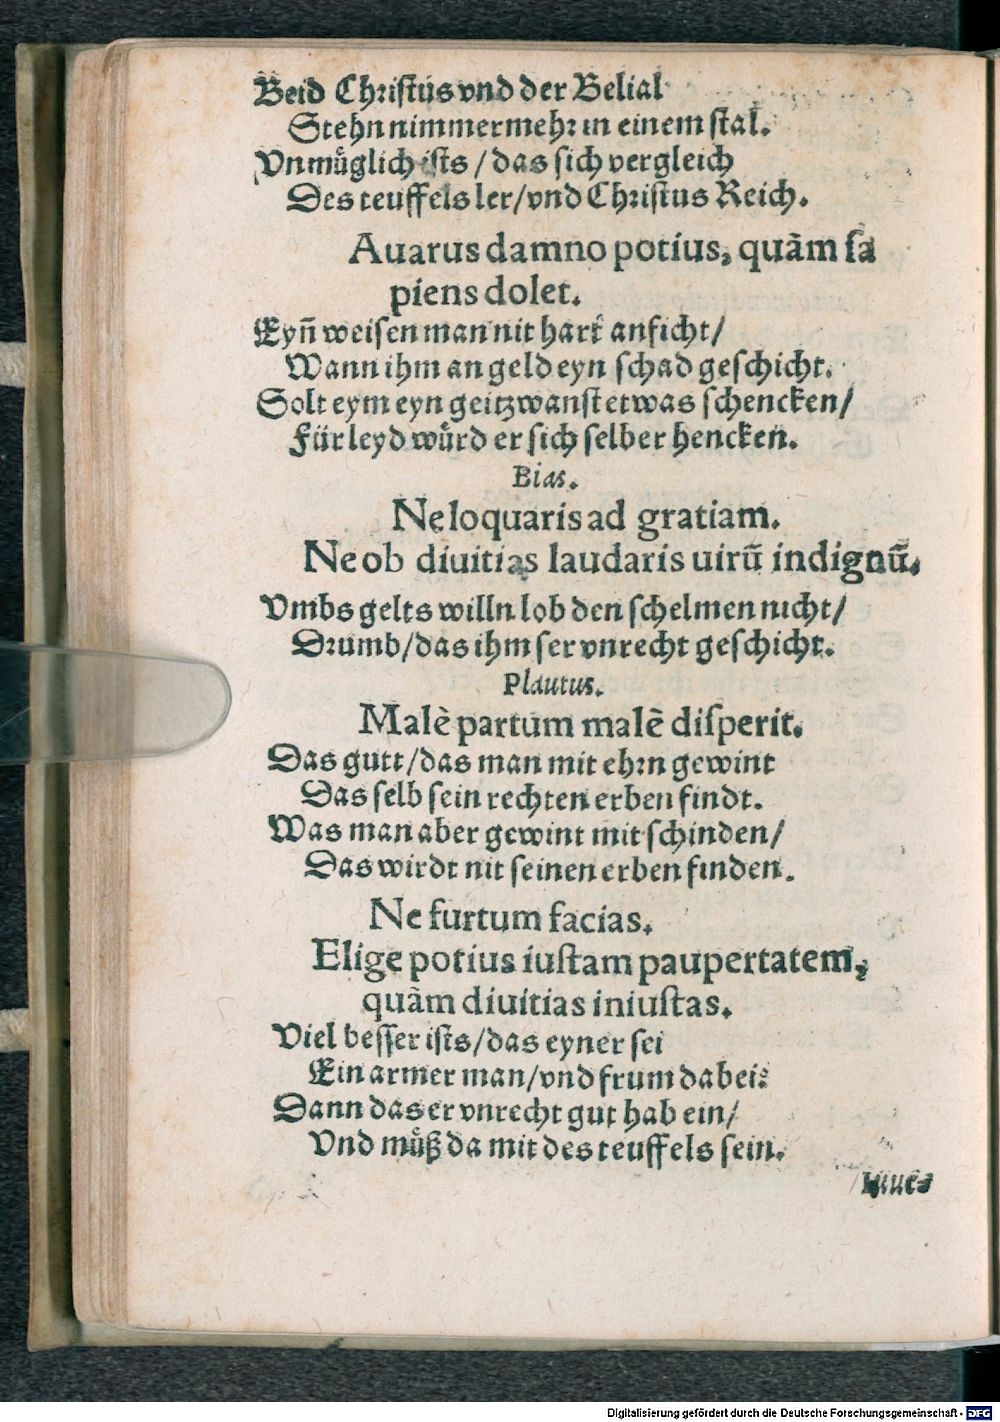 Beid Christus vnd der Belial
Stehn nimmermehr in einem stal.
Vnmuͤglich ists / das sich vergleich
Des teuffels ler / vnd Christus Reich.
Auarus damno potius, quàm ſa
piens dolet.
Eyn̄ weisen man nit hart anficht /
Wann ihm an geld eyn schad geschicht.
Solt eym eyn geitzwanst etwas schencken /
Fuͤr leyd wuͤrd er sich selber hencken.
Bias.
Ne loquaris ad gratiam.
Ne ob diuitias laudaris uirū indignū.
Vmbs gelts willn lob den schelmen nicht /
Drumb / das ihm ser vnrecht geschicht.
Plautus.
Malè partum malè diſperit.
Das gutt / das man mit ehrn gewint
Das selb sein rechten erben findt.
Was man aber gewint mit schinden /
Das wirdt nit seinen erben finden.
Ne furtum facias.
Elige potius iuſtam paupertatem,
quàm diuitias iniuſtas.
Viel besser ists / das eyner sei
Ein armer man / vnd frum dabei:
Dann das er vnrecht gut hab ein /
Vnd muͤß da mit des teuffels sein.
Digitalisierung gefördert durch die Deutsche Forschungsgemeinschaft - DFG